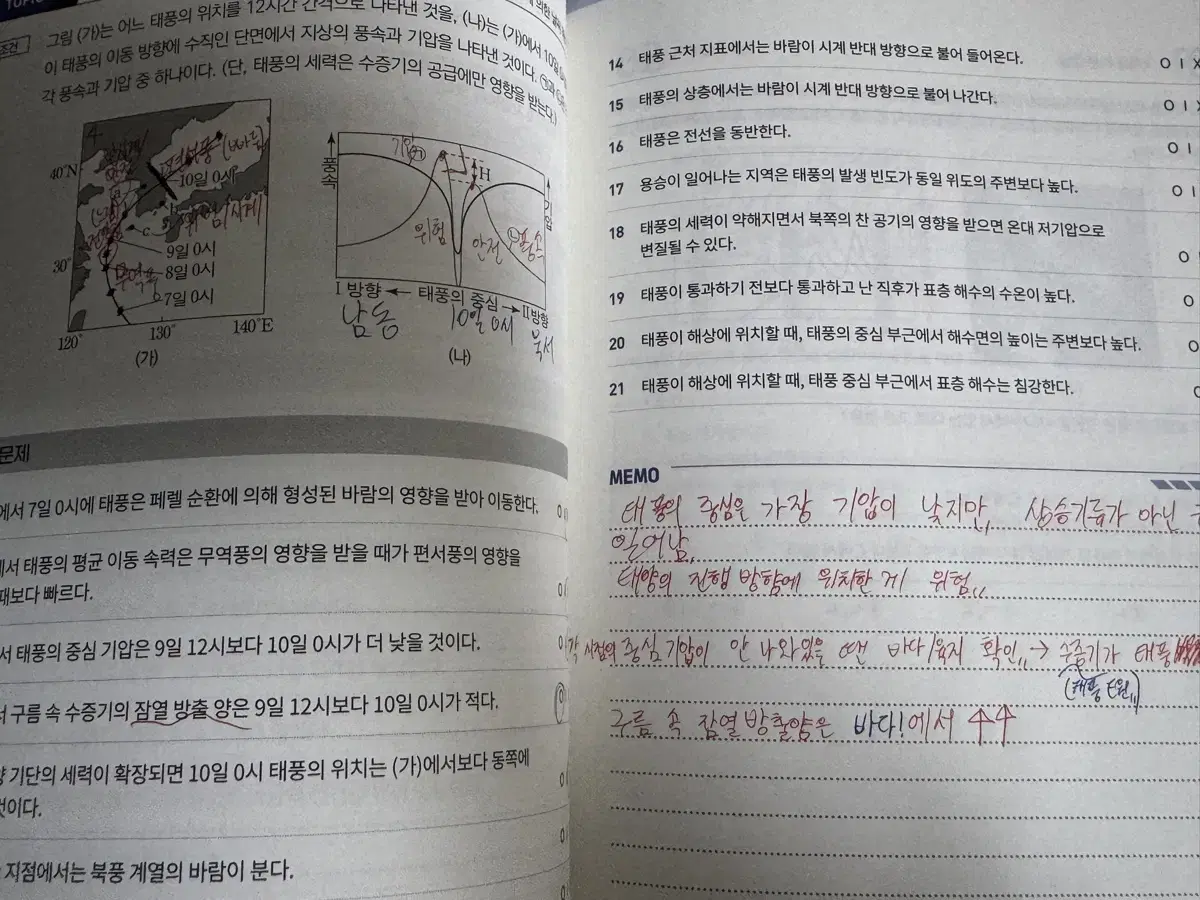 TOPIC
조건
그림 (가)는 어느 태풍의 위치를 12시간 간격으로 나타낸 것을, (나)는 (가)에서 10일 0시
이 태풍의 이동 방향에 수직인 단면에서 지상의 풍속과 기압을 나타낸 것이다.
각 풍속과 기압 중 하나이다. (단, 태풍의 세력은 수증기의 공급에만 영향을 받는다.)
40°N
편서풍
10일 0시
9일 0시
30°
무역풍
8일 0시
7일 0시
120°
130°
140°E
(가)
풍속
기압
㉠
H
기압
위험
안전
㉡
풍속
I 방향 ← 태풍의 중심 → II 방향
남동
10일 0시
북서
(나)
문제
에서 7일 0시에 태풍은 페렐 순환에 의해 형성된 바람의 영향을 받아 이동한다.
에서 태풍의 평균 이동 속력은 무역풍의 영향을 받을 때가 편서풍의 영향을
때보다 빠르다.
서 태풍의 중심 기압은 9일 12시보다 10일 0시가 더 낮을 것이다.
서 구름 속 수증기의 잠열 방출 양은 9일 12시보다 10일 0시가 적다.
양 기단의 세력이 확장되면 10일 0시 태풍의 위치는 (가)에서보다 동쪽에
것이다.
지점에서는 북풍 계열의 바람이 분다.
14 태풍 근처 지표에서는 바람이 시계 반대 방향으로 불어 들어온다. O I X
15 태풍의 상층에서는 바람이 시계 반대 방향으로 불어 나간다. O I X
16 태풍은 전선을 동반한다. O I
17 용승이 일어나는 지역은 태풍의 발생 빈도가 동일 위도의 주변보다 높다. O I
18 태풍의 세력이 약해지면서 북쪽의 찬 공기의 영향을 받으면 온대 저기압으로
변질될 수 있다. O
19 태풍이 통과하기 전보다 통과하고 난 직후가 표층 해수의 수온이 높다. O
20 태풍이 해상에 위치할 때, 태풍의 중심 부근에서 해수면의 높이는 주변보다 높다. O
21 태풍이 해상에 위치할 때, 태풍 중심 부근에서 표층 해수는 침강한다.
MEMO
태풍의 중심은 가장 기압이 낮지만, 상승기류가 아닌
일어남.
태양의 진행 방향에 위치한 게 위험,,
각 시점의 중심 기압이 안 나와있을 땐 바다/육지 확인,, → 수증기가 태풍
(태풍 E원,,)
구름 속 잠열 방출양은 바다!에서 ↑↑